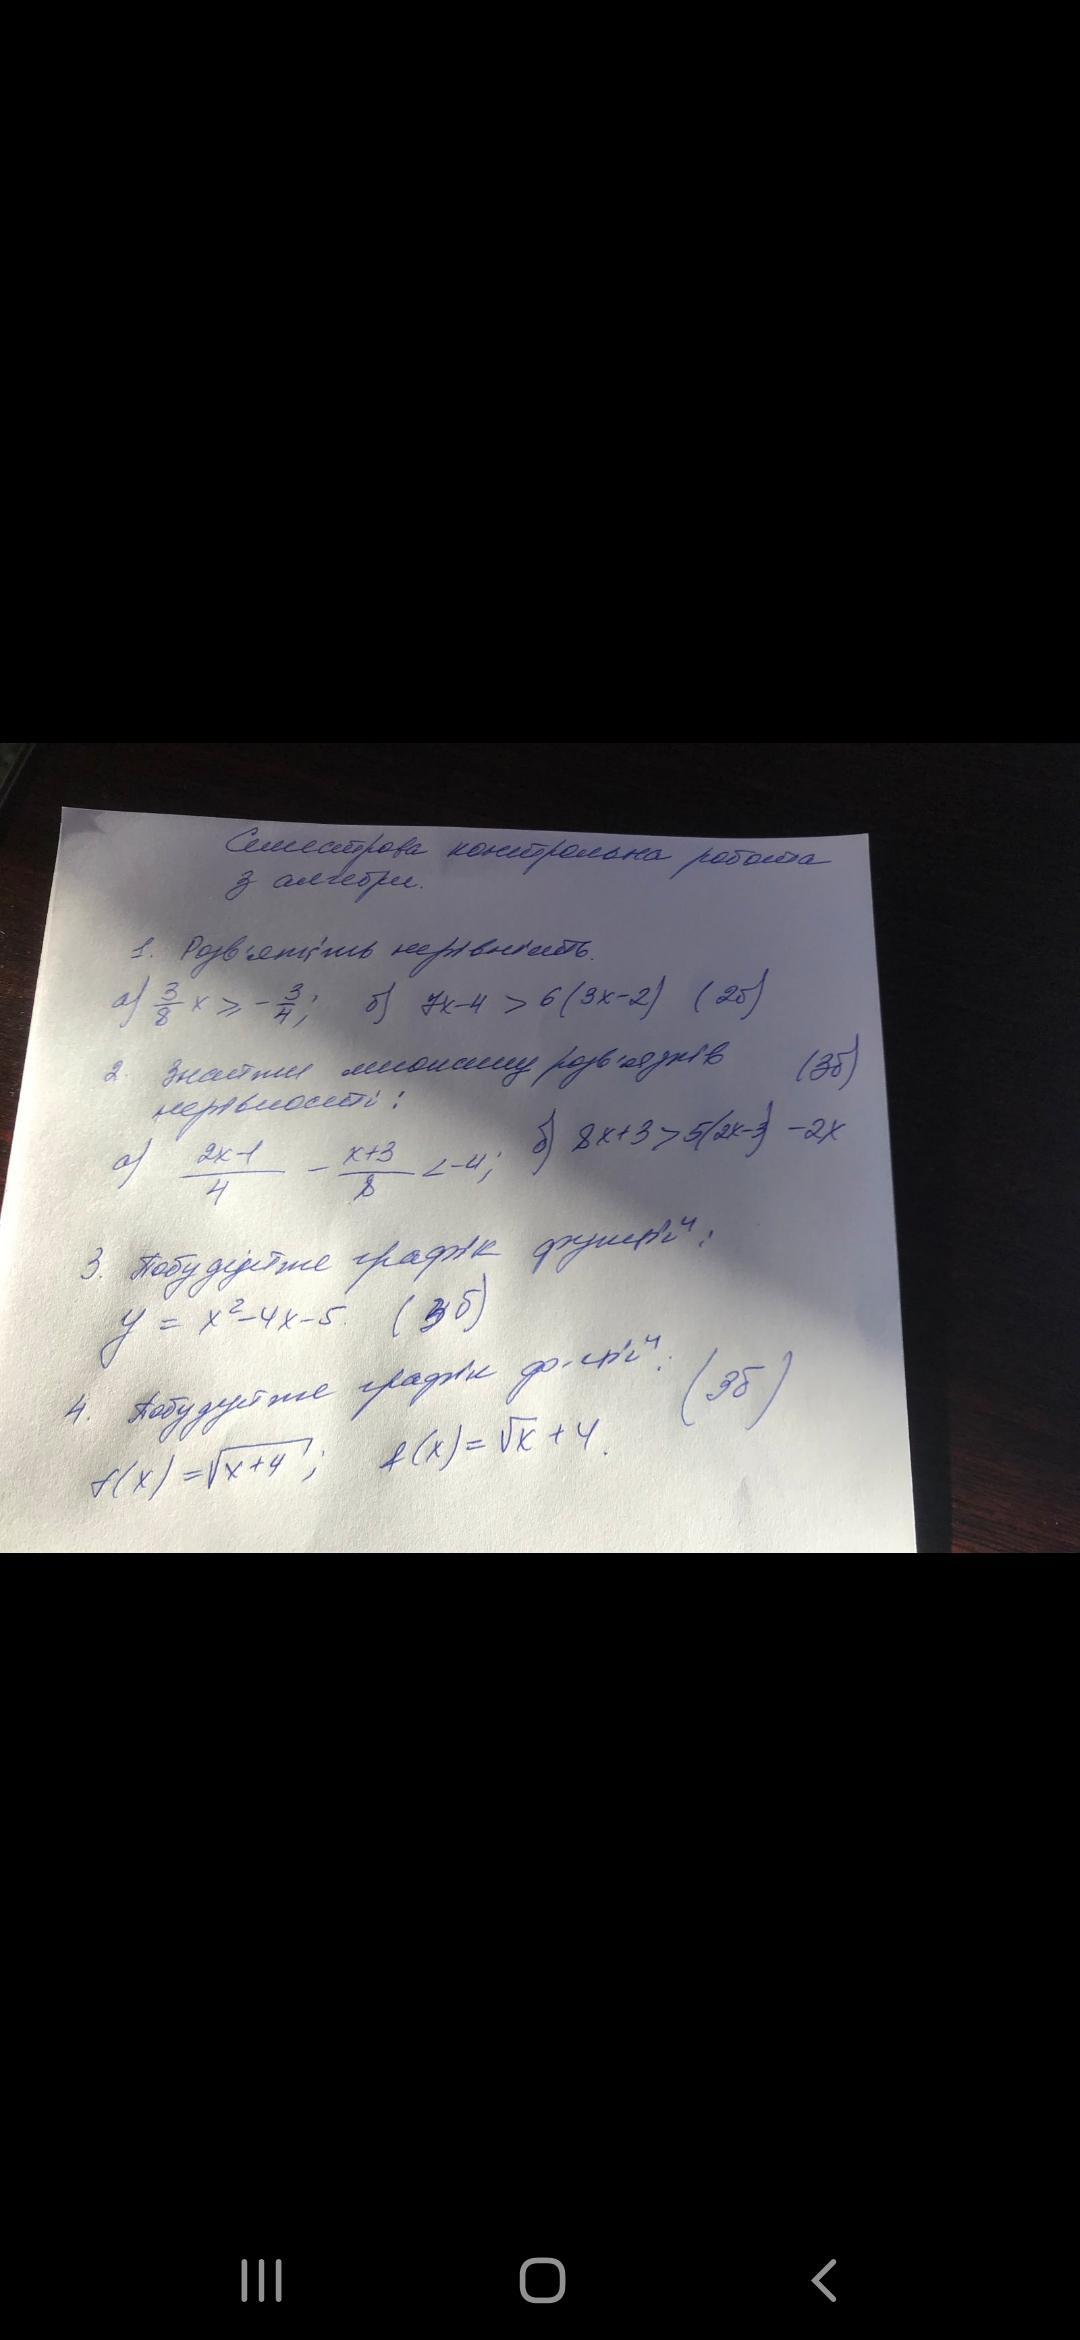 Семестрова контрольна робота
з алгебри.
1. Розв'яжіть нерівність.
а) 3/8 x ⩾ -3/4; б) 7x-4 > 6(3x-2) (2б)
2. Знайти множину розв'язків (3б)
нерівності:
а) (2x-1)/4 - (x+3)/8 < -4; б) 8x+3 > 5(2x-3) -2x
3. Побудуйте графік функції:
y = x²-4x-5. (3б)
4. Побудуйте графік ф-ції: (3б)
f(x) = √(x+4); f(x) = √x + 4.